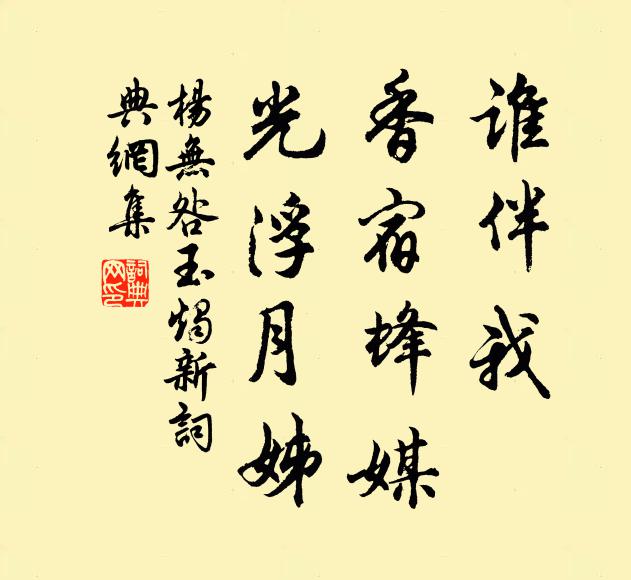 誰伴我
香宿蜂媒
光浮月姊
楊無咎玉燭新詞
典網集
詞典网印